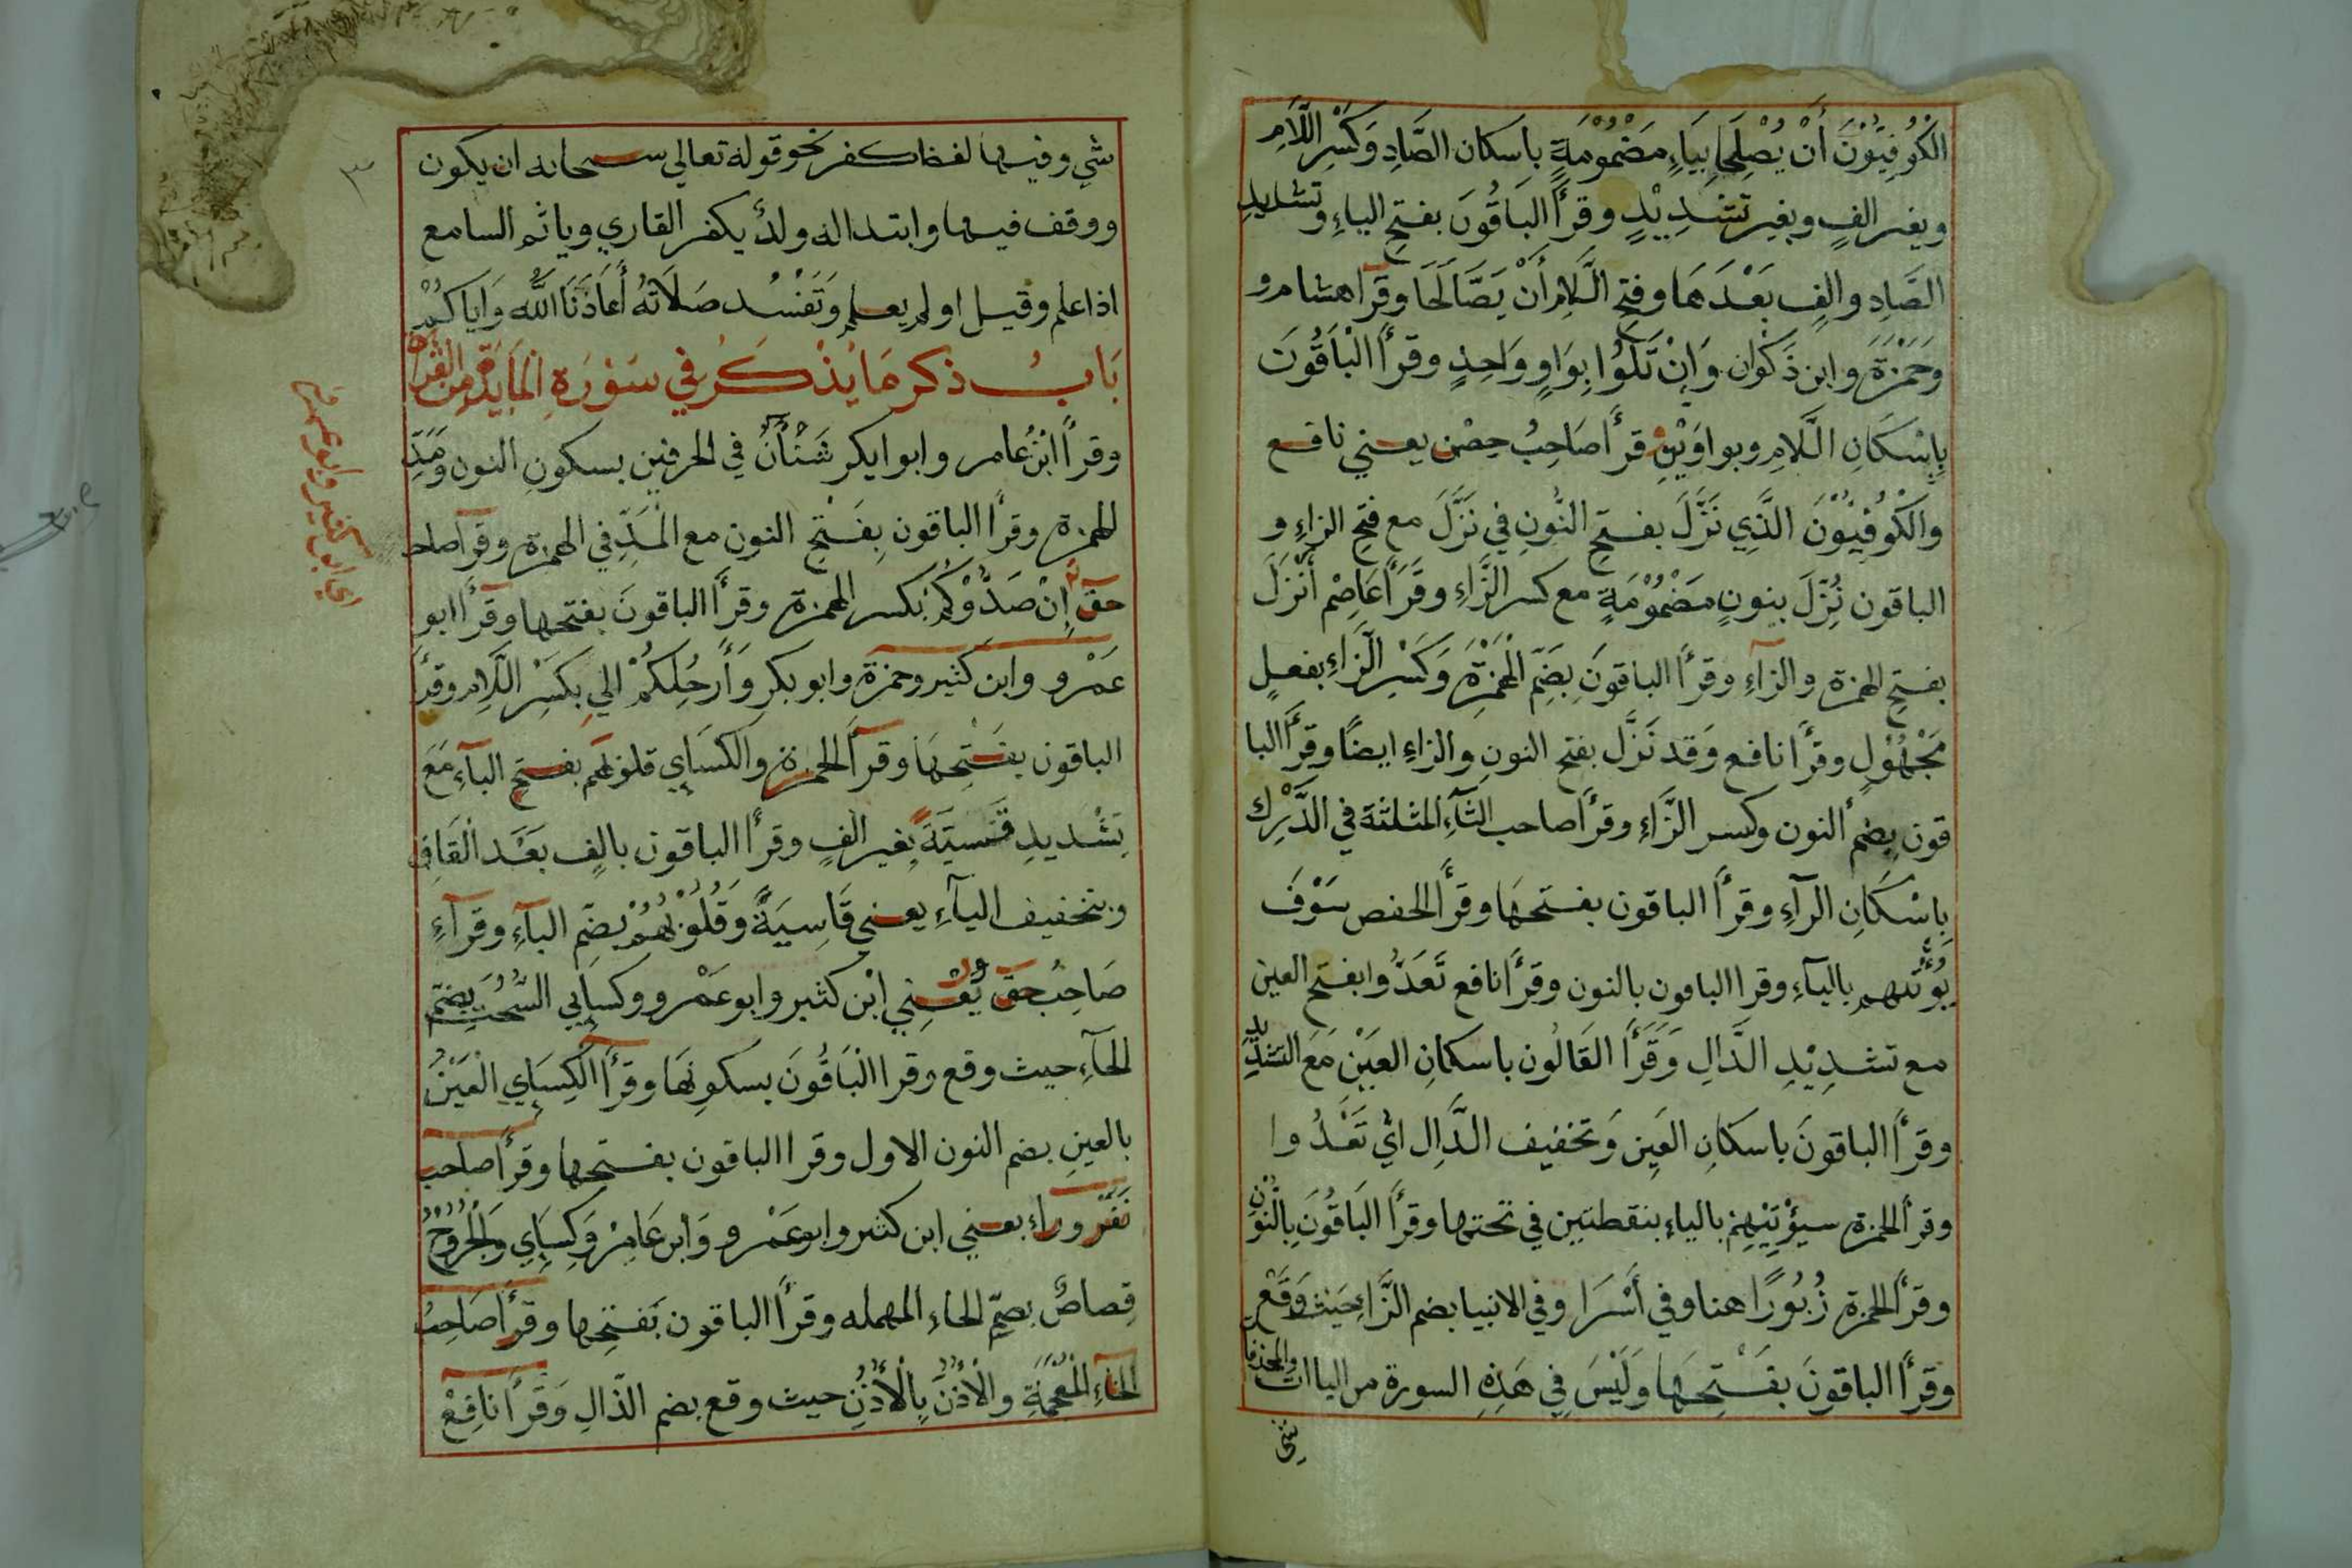 الْكُوْفِيُّوْنَ أَنْ يُصْلِحَا بِيَاءٍ مَضْمُوْمَةٍ بِاسكان الصَّادِ وَكَسْرِ اللَّامِ
وبغير الفٍ وبغير تشْدِيْدٍ وقرأ البَاقُونَ بفتحِ الياءِ وتشديدِ
الصَّادِ والفٍ بَعْدَهَا وفتحِ اللَّامِ أَنْ يَصَّالَحَا وقرآ هشام و
وَحَمْزَةَ وابن ذَكوان وَاِنْ تَلُوُا بِوَاوٍ وَاحِدٍ وقرأ الْبَاقُونَ
بِاِسْكَانِ اللَّامِ وبواوَيْنِ قرأ صَاحِبُ حِصْن يعني نافع
والْكُوْفِيُّوْنَ الَّذِي نَزَّلَ بفتحِ النُّونِ في نَزَّلَ مع فتحِ الزاءِ و
الباقون نُزِّلَ بنونٍ مَضْمُوْمَةٍ مع كسر الزَّاءِ وقَرَأَ عَاصِم أَنْزَلَ
بفتحِ الهمزة والزآءِ وقرأ الباقونَ بِضَمِّ الْهَمْزَةِ وَكَسْرِ الزَّاءِ بفعلٍ
مَجْهُوْلٍ وقرأ نافع وَقد نَزَّل بفتح النون والزاءِ ايضًا وقرأ البا
قون بِضم النون وكسر الزَّاءِ وقرأ صاحب الثَّآءِ المثلثة في الدَّرْكِ
بِاسْكَانِ الرآءِ وقرأ الباقون بفتحهَا وقرأ الحفص سَوْفَ
يُؤْتِيهِم بالياءِ وقرا الباقون بالنون وقرأ نافع تَعَدُّوا بفتح العين
مع تشدِيْدِ الدَّالِ وَقَرَأَ القَالُون باسكانِ العَيْنِ مَعَ التشديد
وقرأ الباقونَ باسكانِ العَينِ وَتخفيف الدَّالِ اي تَعْدُوا
وقرأ الحمزة سيؤْتِيْهِمْ بالياءِ بنقطتين في تحتها وقرأ البَاقُونَ بِالنُّوْنِ
وقرأ الحمزة زُبُورًا هنا وفي أَسْرَا وفي الانبيا بضم الزَّاءِ حَيْثُ وَقَعَ
وقرأ الباقونَ بفَتْحِهَا وَلَيْسَ فِي هَذِهِ السورة من الياات والمحذفات
شي
شيٍ وفيها لفظ كفر نحو قوله تعالي سبحانه ان يكون
ووقف فيها وابتدا له ولدٌ يكفر القاري وياثم السامع
اذا علم وقيل او لم يعلم وَتَفْسُد صَلَاتُهُ أَعَاذَنَا اللَّه وَاياكُمْ
بَابُ ذكر مَا يُذْكَرُ في سَوْرَةِ الْمَايدَةِ مِنَ القرآة
وقرأ ابْنُ عامر وابو ايكر شَنْأَنُ في الحرفين بسكونِ النون ومَدِّ
الهمزة وقرأ الباقون بِفَتْحِ النون مع الْمَدِّ في الهمزة وقرآ صاحب
حقّ إِنْ صَدُّوْكُمْ بكسر الهمزة وقرأ الباقونَ بفتحها وقرأ ابو
عَمْرو وابن كثير وحمزة وابو بكرٍ وَأَرْجُلِكُمْ الي بِكَسْرِ اللَّامِ وقرأ
الباقون بفَتْحِهَا وقرآ الحمزة والكسَاي قلوبهم بفتحِ البآءِ مَعَ
تَشْديدِ قَسِيَّةَ بغير الفٍ وقرأ الباقون بالِفٍ بَعْدَ القَافِ
وبتخفيف اليآءِ يعني قَاسِيَةً وَقُلُوْبُهُمْ بِضَمِّ البآءِ وقرآءِ
صَاحِبُ حَقّ يَعْنِي ابْن كثير وابو عَمْرو وكسايي السُّحُتِ بِضَمِّ
الحآءِ حيث وقع وقرا الْبَاقُونَ بسكونهَا وقرأ الكِسَاي الْعَيْنُ
بالعينِ بضم النون الاول وقرا الباقون بفتحها وقرأ صاحب
نَفَرٍ وراءِ يعني ابن كثير وابو عَمْرو وَابن عَامِرْ وَكِسَاي وَالْجُرُوْحُ
قِصاصٌ بضمِّ الحاءِ المهمله وقرأ الباقون بَفَتحِها وقرأ صَاحِبُ
الخآءِ الْمُعْجَمَةِ والْأُذُنَ بِالْأُذُنِ حيث وقع بضم الذّالِ وَقَرَأَ نَافِعْ
اي ابن كثير وابو عمرو
٣